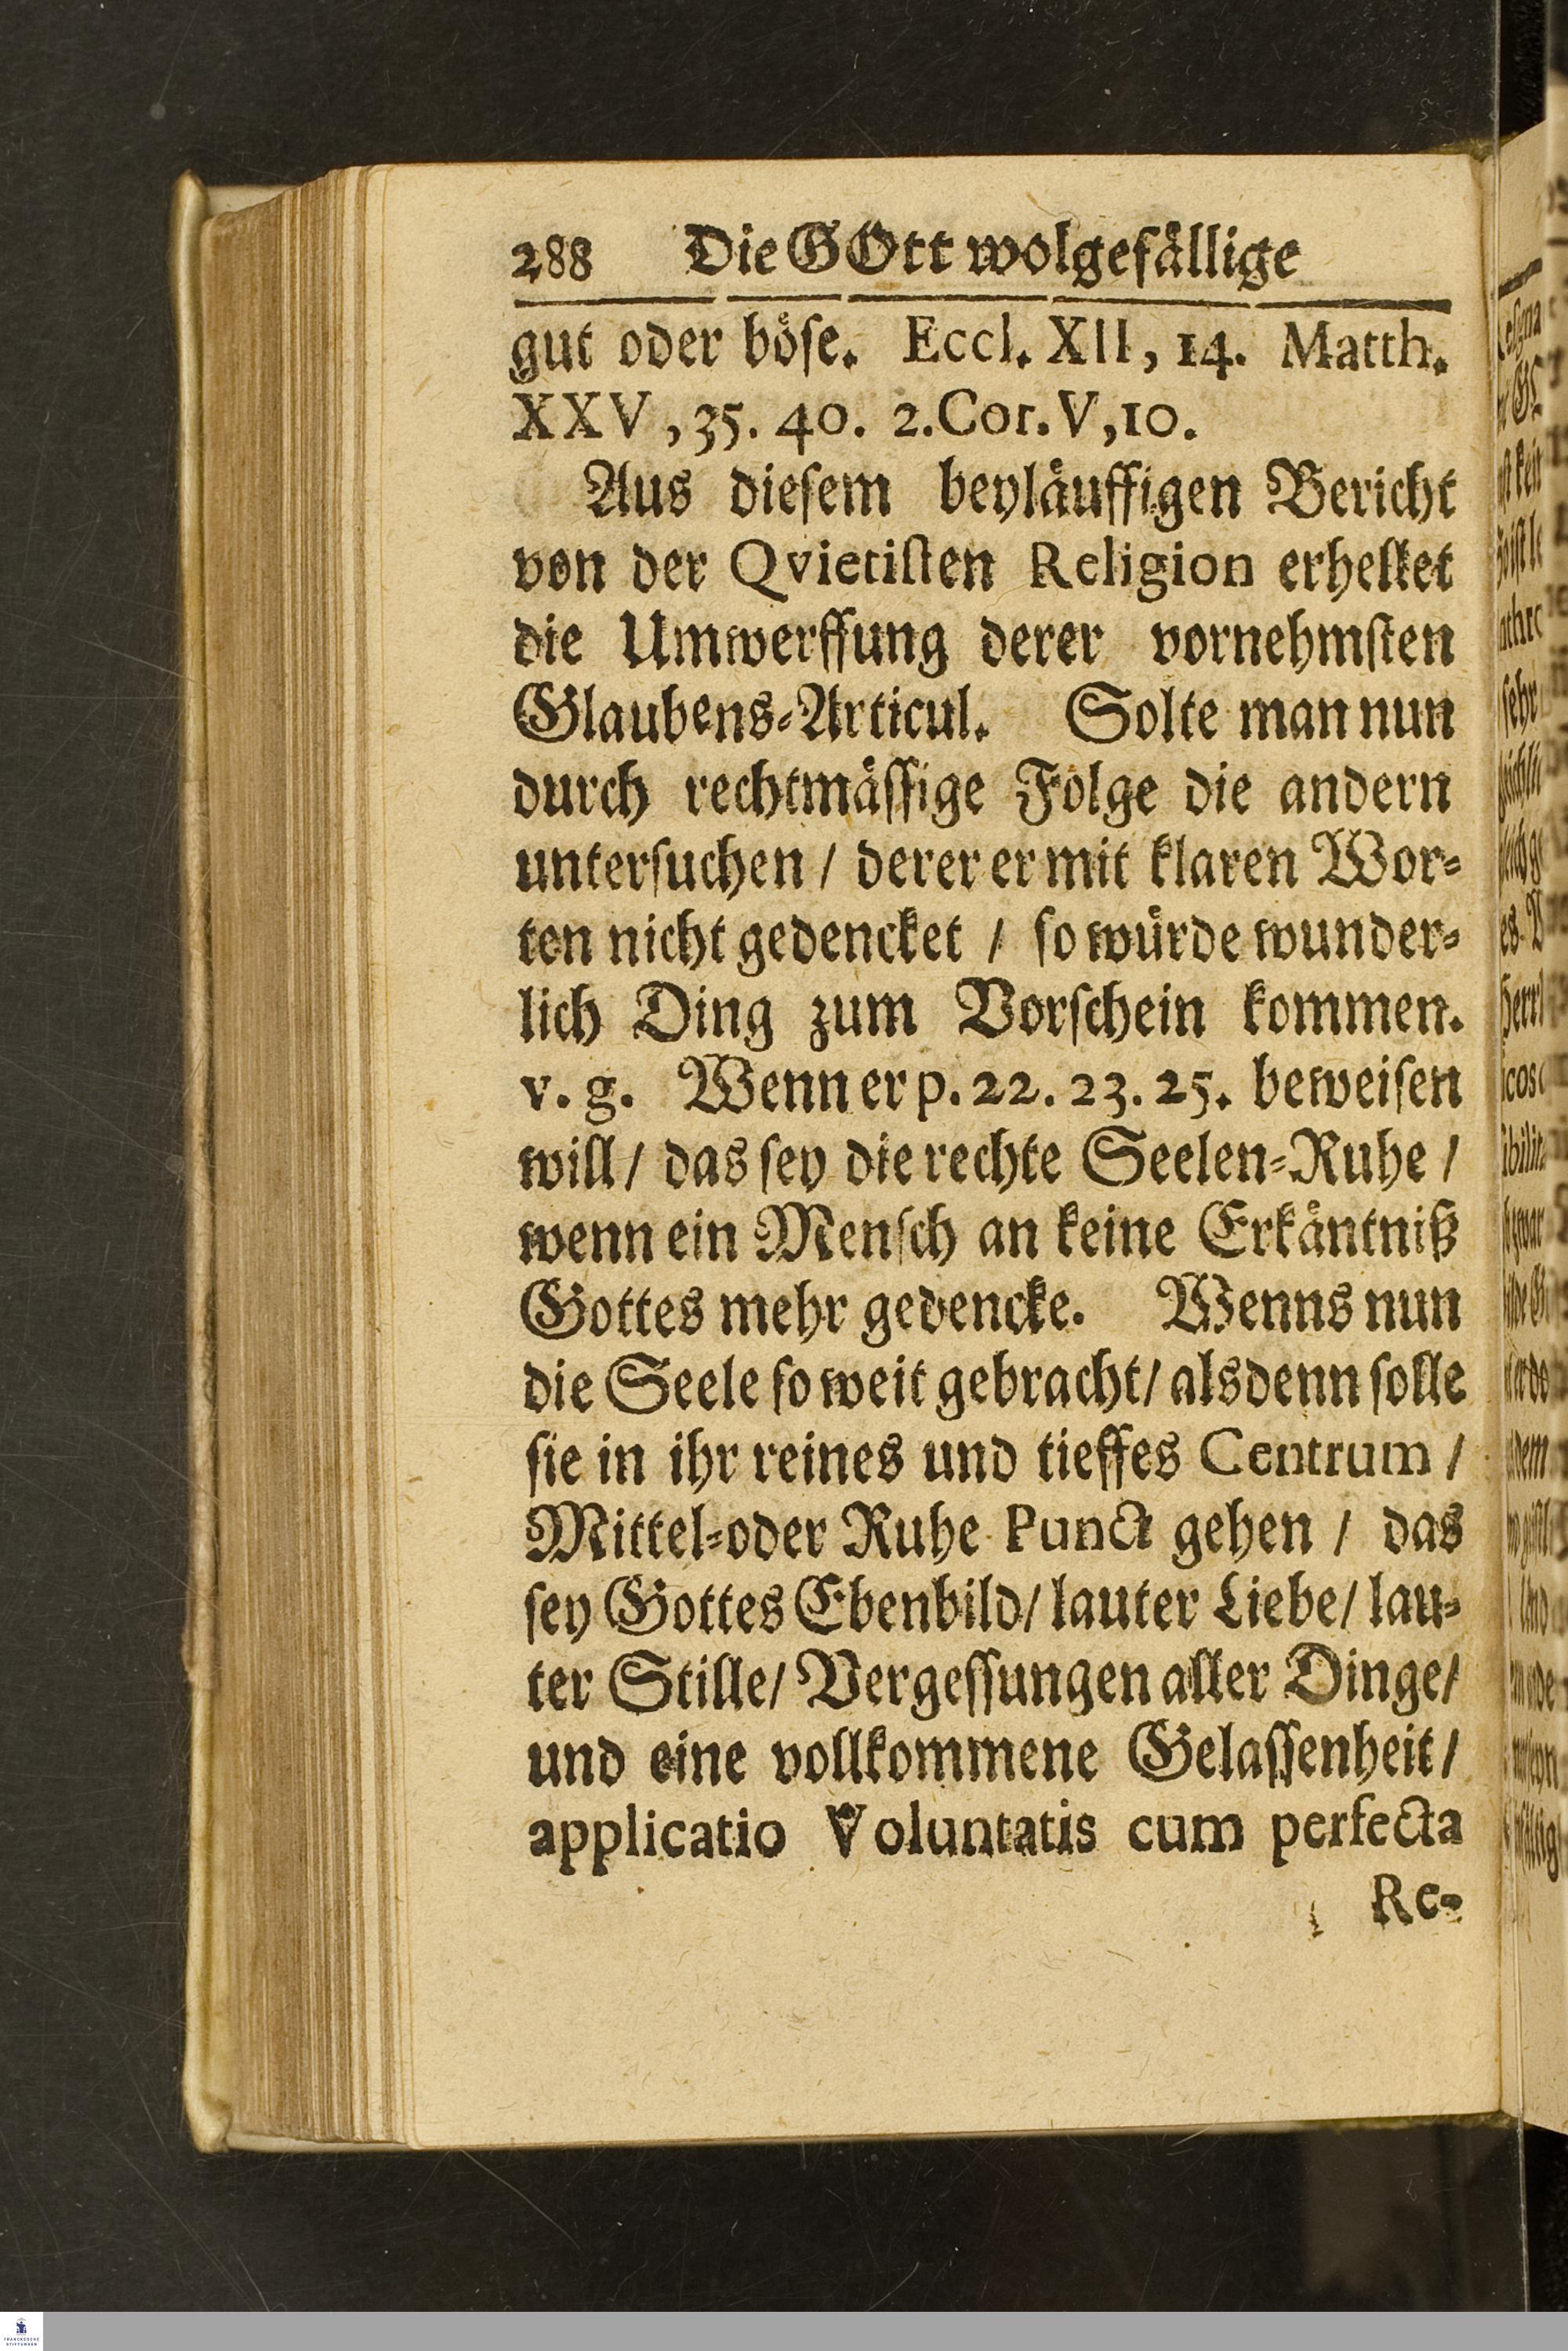 288 Die GOtt wolgefällige
gut oder böse. Eccl. XII, 14. Matth.
XXV, 35. 40. 2. Cor. V, 10.
Aus diesem beyläuffigen Bericht
von der Qvietisten Religion erhellet
die Umwerffung derer vornehmsten
Glaubens-Articul. Solte man nun
durch rechtmässige Folge die andern
untersuchen / derer er mit klaren Wor-
ten nicht gedencket / so würde wunder-
lich Ding zum Vorschein kommen.
v. g. Wenn er p. 22. 23. 25. beweisen
will / das sey die rechte Seelen-Ruhe /
wenn ein Mensch an keine Erkäntniß
Gottes mehr gedencke. Wenns nun
die Seele so weit gebracht / alsdenn solle
sie in ihr reines und tieffes Centrum /
Mittel-oder Ruhe Punct gehen / das
sey Gottes Ebenbild / lauter Liebe / lau-
ter Stille / Vergessungen aller Dinge /
und eine vollkommene Gelassenheit /
applicatio Voluntatis cum perfecta
Re-
FRANCKESCHE
STIFTUNGEN